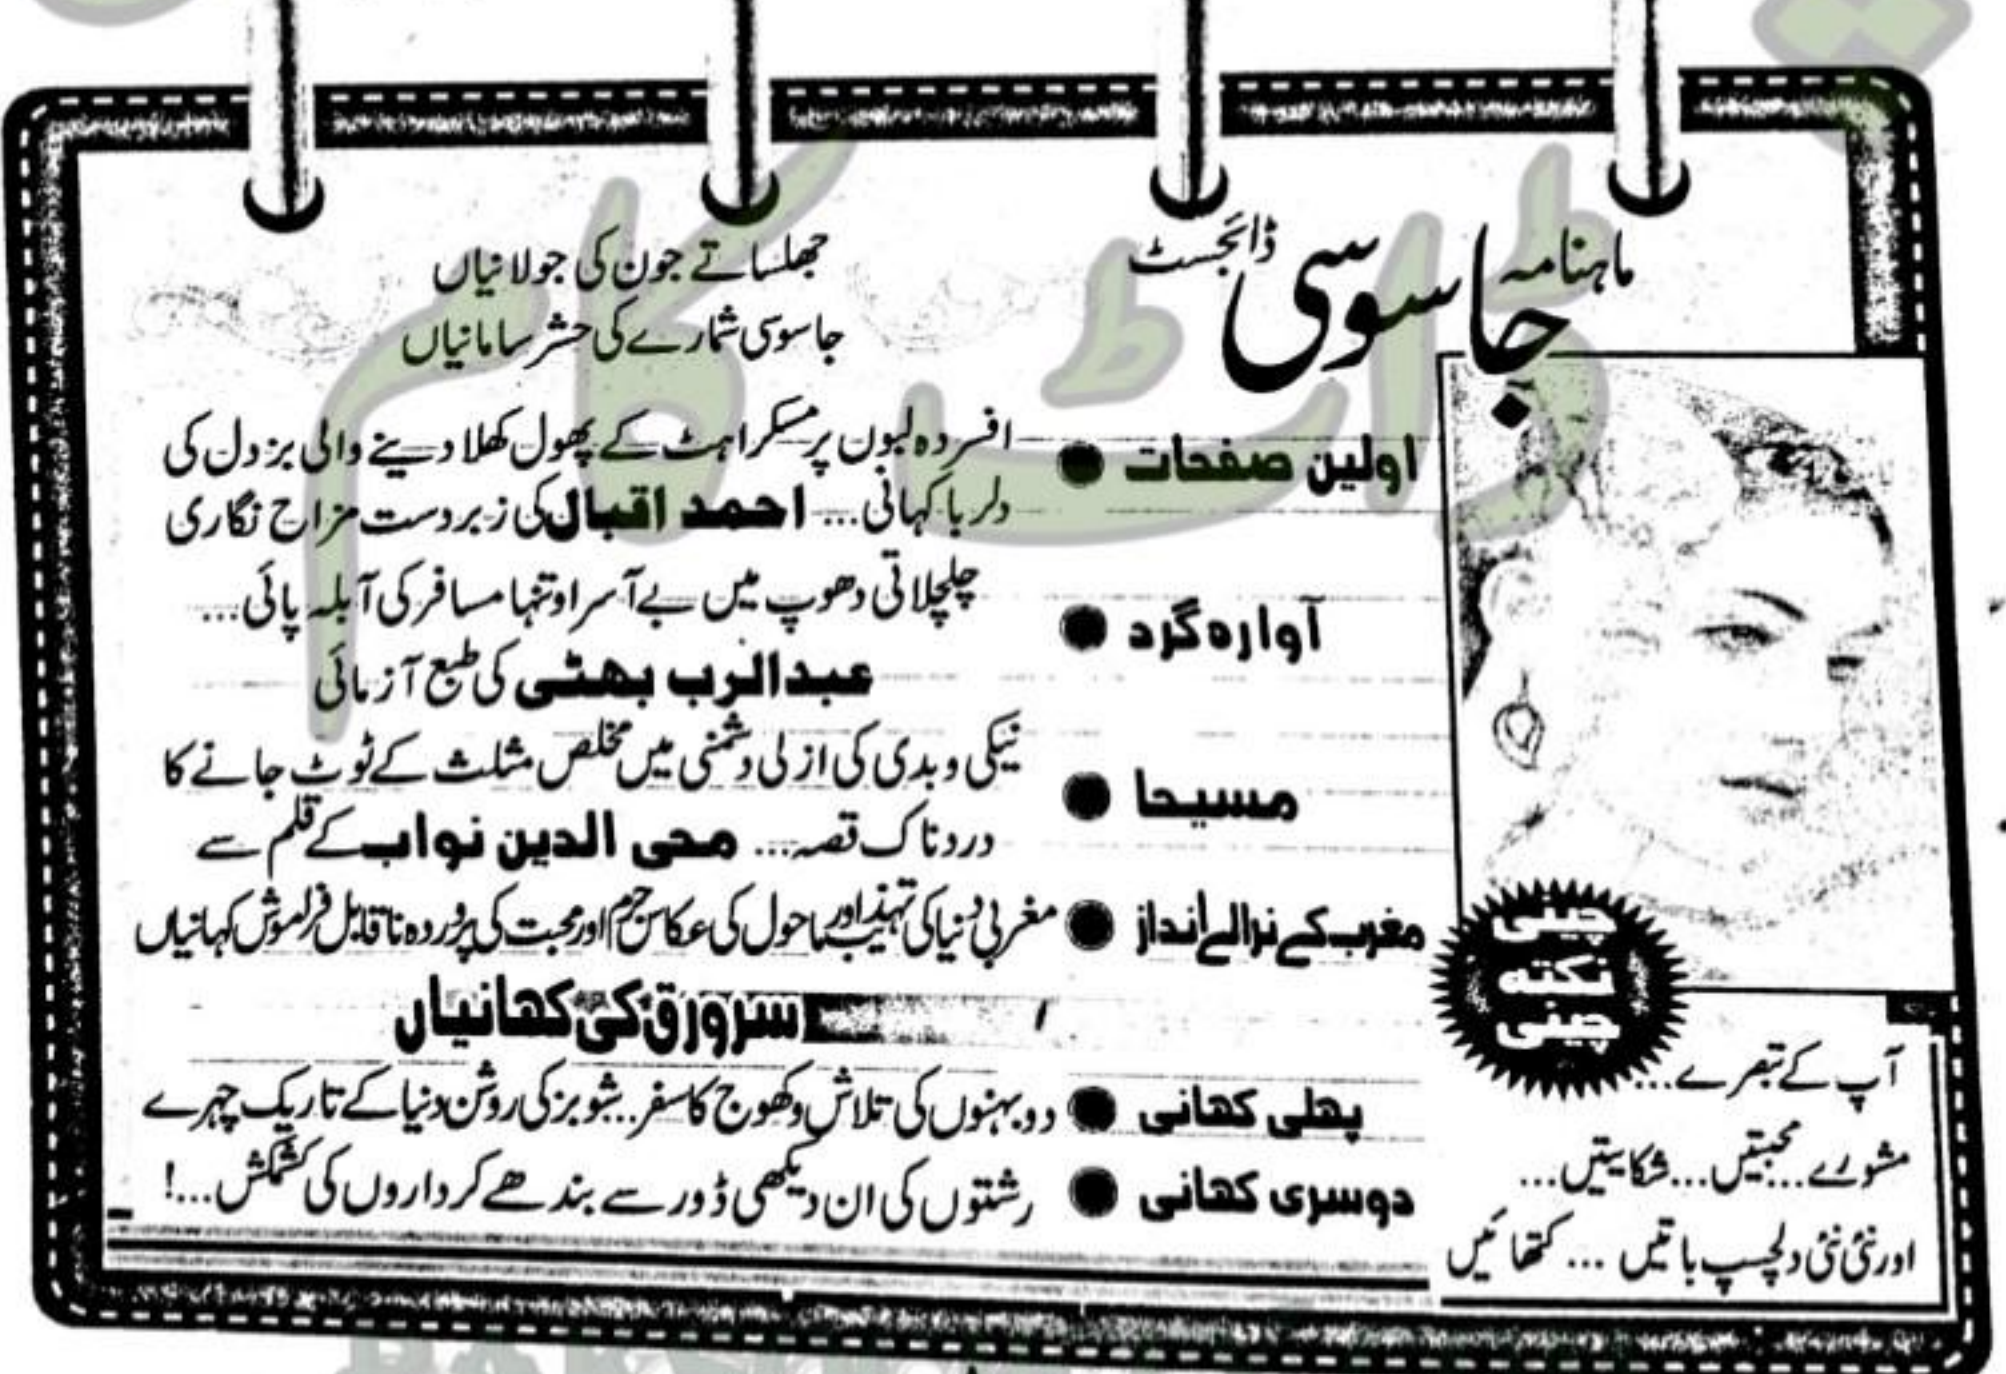 ماہنامہ جاسوسی ڈائجسٹ
جھلساتے جون کی جولانیاں
جاسوسی شمارے کی حشر سامانیاں
اولین صفحات ● افسردہ لبوں پر مسکراہٹ کے پھول کھلا دینے والی بزدل کی
دلربا کہانی... احمد اقبال کی زبردست مزاح نگاری
آوارہ گرد ● چلچلاتی دھوپ میں بے آسرا و تنہا مسافر کی آبلہ پائی...
عبدالرب بھٹی کی طبع آزمائی
مسیحا ● نیکی و بدی کی ازلی دشمنی میں مخلص مثلث کے ٹوٹ جانے کا
دردناک قصہ... محی الدین نواب کے قلم سے
مغرب کے نرالے انداز ● مغربی دنیا کی تہذیب اور ماحول کی عکاس جرم اور محبت کی پروردہ ناقابل فراموش کہانیاں
سرورق کی کہانیاں
پہلی کہانی ● دو بہنوں کی تلاش و کھوج کا سفر... شوبز کی روشن دنیا کے تاریک چہرے
دوسری کہانی ● رشتوں کی ان دیکھی ڈور سے بندھے کرداروں کی کشمکش...!
چینی
نکتہ
چینی
آپ کے تبصرے...
مشورے... محبتیں... شکایتیں...
اور نئی نئی دلچسپ باتیں... کتھائیں
ڈاٹ کام